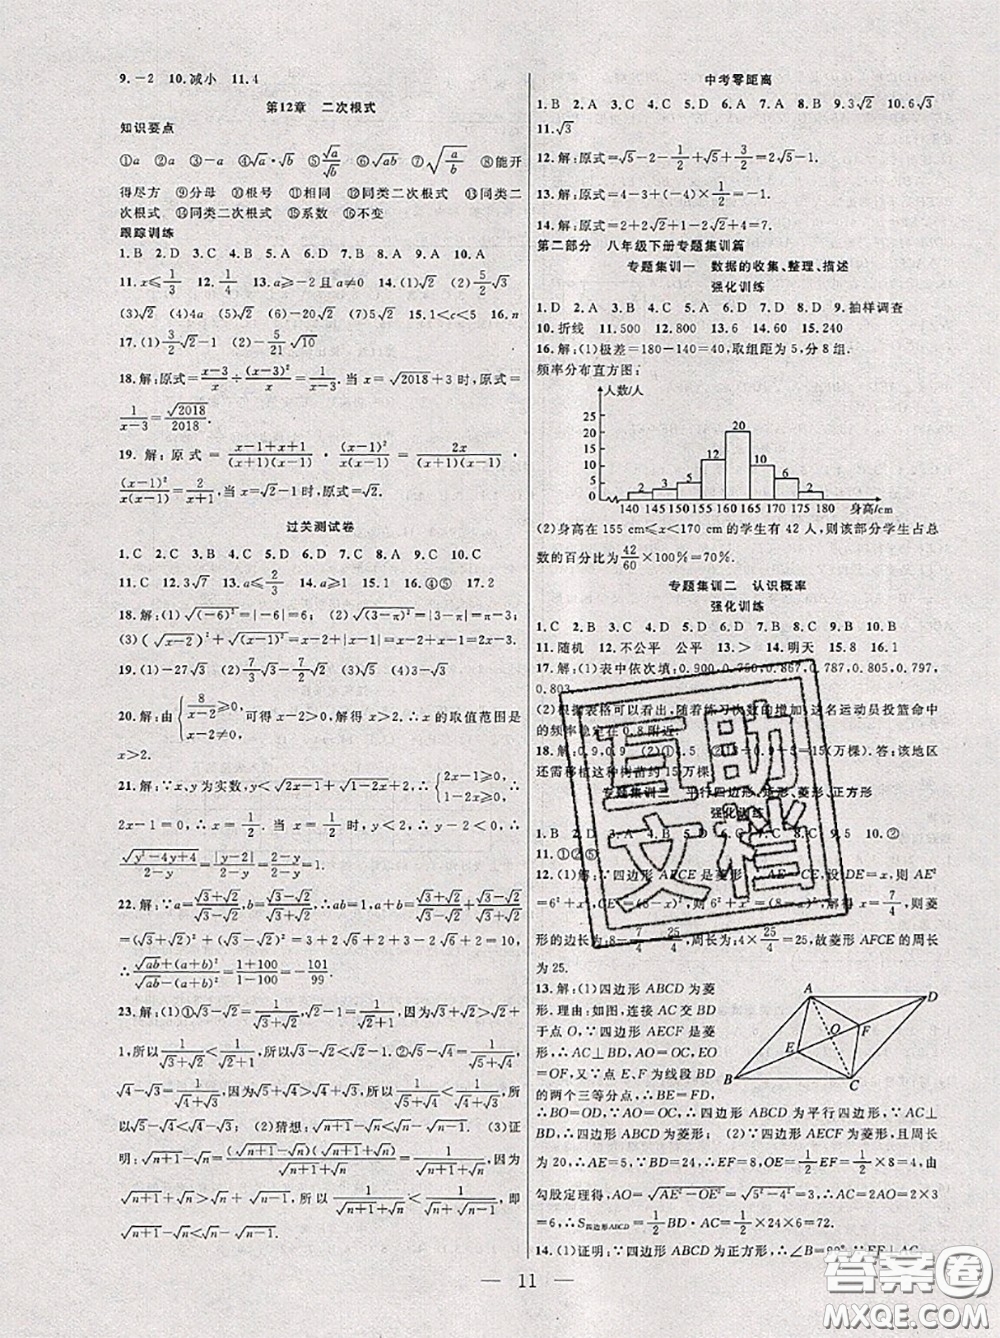 9.-2 10.减小 11.4
第12章 二次根式
知识要点
①a ②a ③-a ④√a·√b ⑤√a/√b ⑥√ab ⑦√(a/b) ⑧能开
得尽方 ⑨分母 ⑩根号 ⑪相同 ⑫同类二次根式 ⑬同类二
次根式 ⑭同类二次根式 ⑮系数 ⑯不变
跟踪训练
1.B 2.D 3.C 4.B 5.A 6.C 7.C 8.D 9.A 10.A
11.x≤1/3 12.4/3 13.a≥-2且a≠0 14.(1)√2 (2)5√2/2
(3)√2 (4)4a (5)2√5 (6)-20√2 (7)5√2 15.1<c<5 16.n
17.(1)3/2√2-√3 (2)-5/21√10
18.解:原式=(x-3)/x÷(x-3)²/x=1/(x-3). 当x=√2018+3时,原式=
1/(x-3)=√2018/2018.
19.解:原式=(x-1+x+1)/((x+1)(x-1))·(x-1)²/(x(x-1))=2x/((x+1)(x-1))·
(x-1)²/(x(x-1))=2/(x+1),当x=√2-1时,原式=√2.
过关测试卷
1.C 2.C 3.A 4.D 5.B 6.D 7.C 8.B 9.C 10.C
11.C 12.3√7 13.a≤2/3 14.a≥1 15.1 16.④⑤ 17.2
18.解:(1)√(-6)²=|-6|=6; (2)√(3-π)²=|3-π|=π-3;
(3)(√(x-2))²+√(x-1)²=x-2+|x-1|=x-2+x-1=2x-3.
19.(1)-27√3 (2)7/3√3-7/2√2 (3)6√5 (4)3-√3
20.解:由{8/(x-2)≥0, x-2≠0,可得x-2>0,解得x>2. ∴x的取值范围是
x>2.
21.解:∵x,y为实数,y<√(2x-1)+√(1-2x)+2, ∴{2x-1≥0, 1-2x≥0, ∴
2x-1=0, ∴x=1/2,当x=1/2时,y<2, ∴y-2<0,2-y>0, ∴
√(y²-4y+4)/(2-y)=|y-2|/(2-y)=(2-y)/(2-y)=1.
22.解:∵a=(√3+√2)/(√3-√2),b=(√3-√2)/(√3+√2), ∴ab=1,a+b=(√3+√2)/(√3-√2)+(√3-√2)/(√3+√2)
=(√3+√2)²+(√3-√2)²=3+2+2√6+3+2-2√6=10,
∴(√ab+(a+b)²)/(√ab-(a+b)²)=(1+100)/(1-100)=-101/99.
23.解:(1)①√3-√2=1/(√3+√2),√2-1=1/(√2+1),因为√3+√2>√2+
1,所以1/(√3+√2)<1/(√2+1),所以√3-√2<√2-1. ②√5-√4=1/(√5+√4),
√4-√3=1/(√4+√3),因为√5+√4>√4+√3,所以1/(√5+√4)<1/(√4+√3),所以
√5-√4<√4-√3; (2)猜想:√(n+1)-√n<√n-√(n-1). (3)证
明:√(n+1)-√n=(√(n+1)-√n)(√(n+1)+√n)/(√(n+1)+√n)=1/(√(n+1)+√n),因为
√(n+1)+√n>√n+√(n-1),所以1/(√(n+1)+√n)<1/(√n+√(n-1)),即
√(n+1)-√n<√n-√(n-1).
中考零距离
1.B 2.A 3.C 4.A 5.B 6.A 7.D 8.B 9.3√2 10.6√3
11.√3
12.解:原式=√5-2-1/2+√5+3/2=2√5-1.
13.解:原式=4-3+(-4)×1/2=-1.
14.解:原式=2+2√2+√5-2√2+4=7.
第二部分 八年级下册专题集训篇
专题集训一 数据的收集、整理、描述
强化训练
1.D 2.A 3.C 4.B 5.C 6.C 7.D 8.D 9.抽样调查
10.折线 11.500 12.800 13.6 14.60 15.240
16.解:(1)极差=180-140=40,取组距为5,分8组.
频率分布直方图:
人数/人
25
20 20
15 12
10 10
5 2 3 5 6 2
0 140 145 150 155 160 165 170 175 180 身高/cm
(2)身高在155 cm≤x<170 cm的学生有42人,则该部分学生占总
数的百分比为42/60×100%=70%.
专题集训二 认识概率
强化训练
1.C 2.B 3.D 4.B 5.C 6.B 7.A 8.C 9.B 10.B
11.随机 12.不公平 公平 13.> 14.明天 15.8 16.1
17.解:(1)表中依次填:0.900,0.750,0.867,0.787,0.805,0.797,
0.803.
(2)根据表格可以看出,随着练习次数的增加,这名运动员投篮命中
的频率稳定在0.8附近.
18.解:0.9,0.9 (2)①4.5 ②18÷0.9-5=15(万棵).答:该地区
还需移植这种树苗约15万棵.
专题集训三 平行四边形、矩形、菱形、正方形
强化训练
1.B 2.D 3.A 4.B 5.D 6.C 7.C 8.C 9.5 10.②
11.①②⑤
12.(1)解:∵四边形AECF是菱形,∴AE=CE,设DE=x,则AE²=
6²+x²,CE=(8-x)²,则6²+x²=(8-x)²,解得x=7/4,则菱
形的边长为:8-7/4=25/4,周长为:4×25/4=25,故菱形AFCE的周长
为25.
13.解:(1)四边形ABCD为菱
形.理由:如图,连接AC交BD
于点O,∵四边形AECF是菱
形,∴AC⊥BD,AO=OC,EO
=OF,又∵点E、F为线段BD
的两个三等分点,∴BE=FD,
∴BO=OD,∵AO=OC,∴四边形ABCD为平行四边形,∵AC⊥
BD,∴四边形ABCD为菱形; (2)∵四边形AECF为菱形,且周长为
20,∴AE=5,∵BD=24,∴EF=8,OE=1/2EF=1/2×8=4,由
勾股定理得,AO=√(AE²-OE²)=√(5²-4²)=3,∴AC=2AO=2×3
=6,∴S四边形ABCD=1/2BD·AC=1/2×24×6=72.
14.(1)证明:∵四边形ABCD为正方形,∴∠B=90°,∵EF⊥AC,
A D O F E B C
11
互助文档
答案圈
MXQE.COM